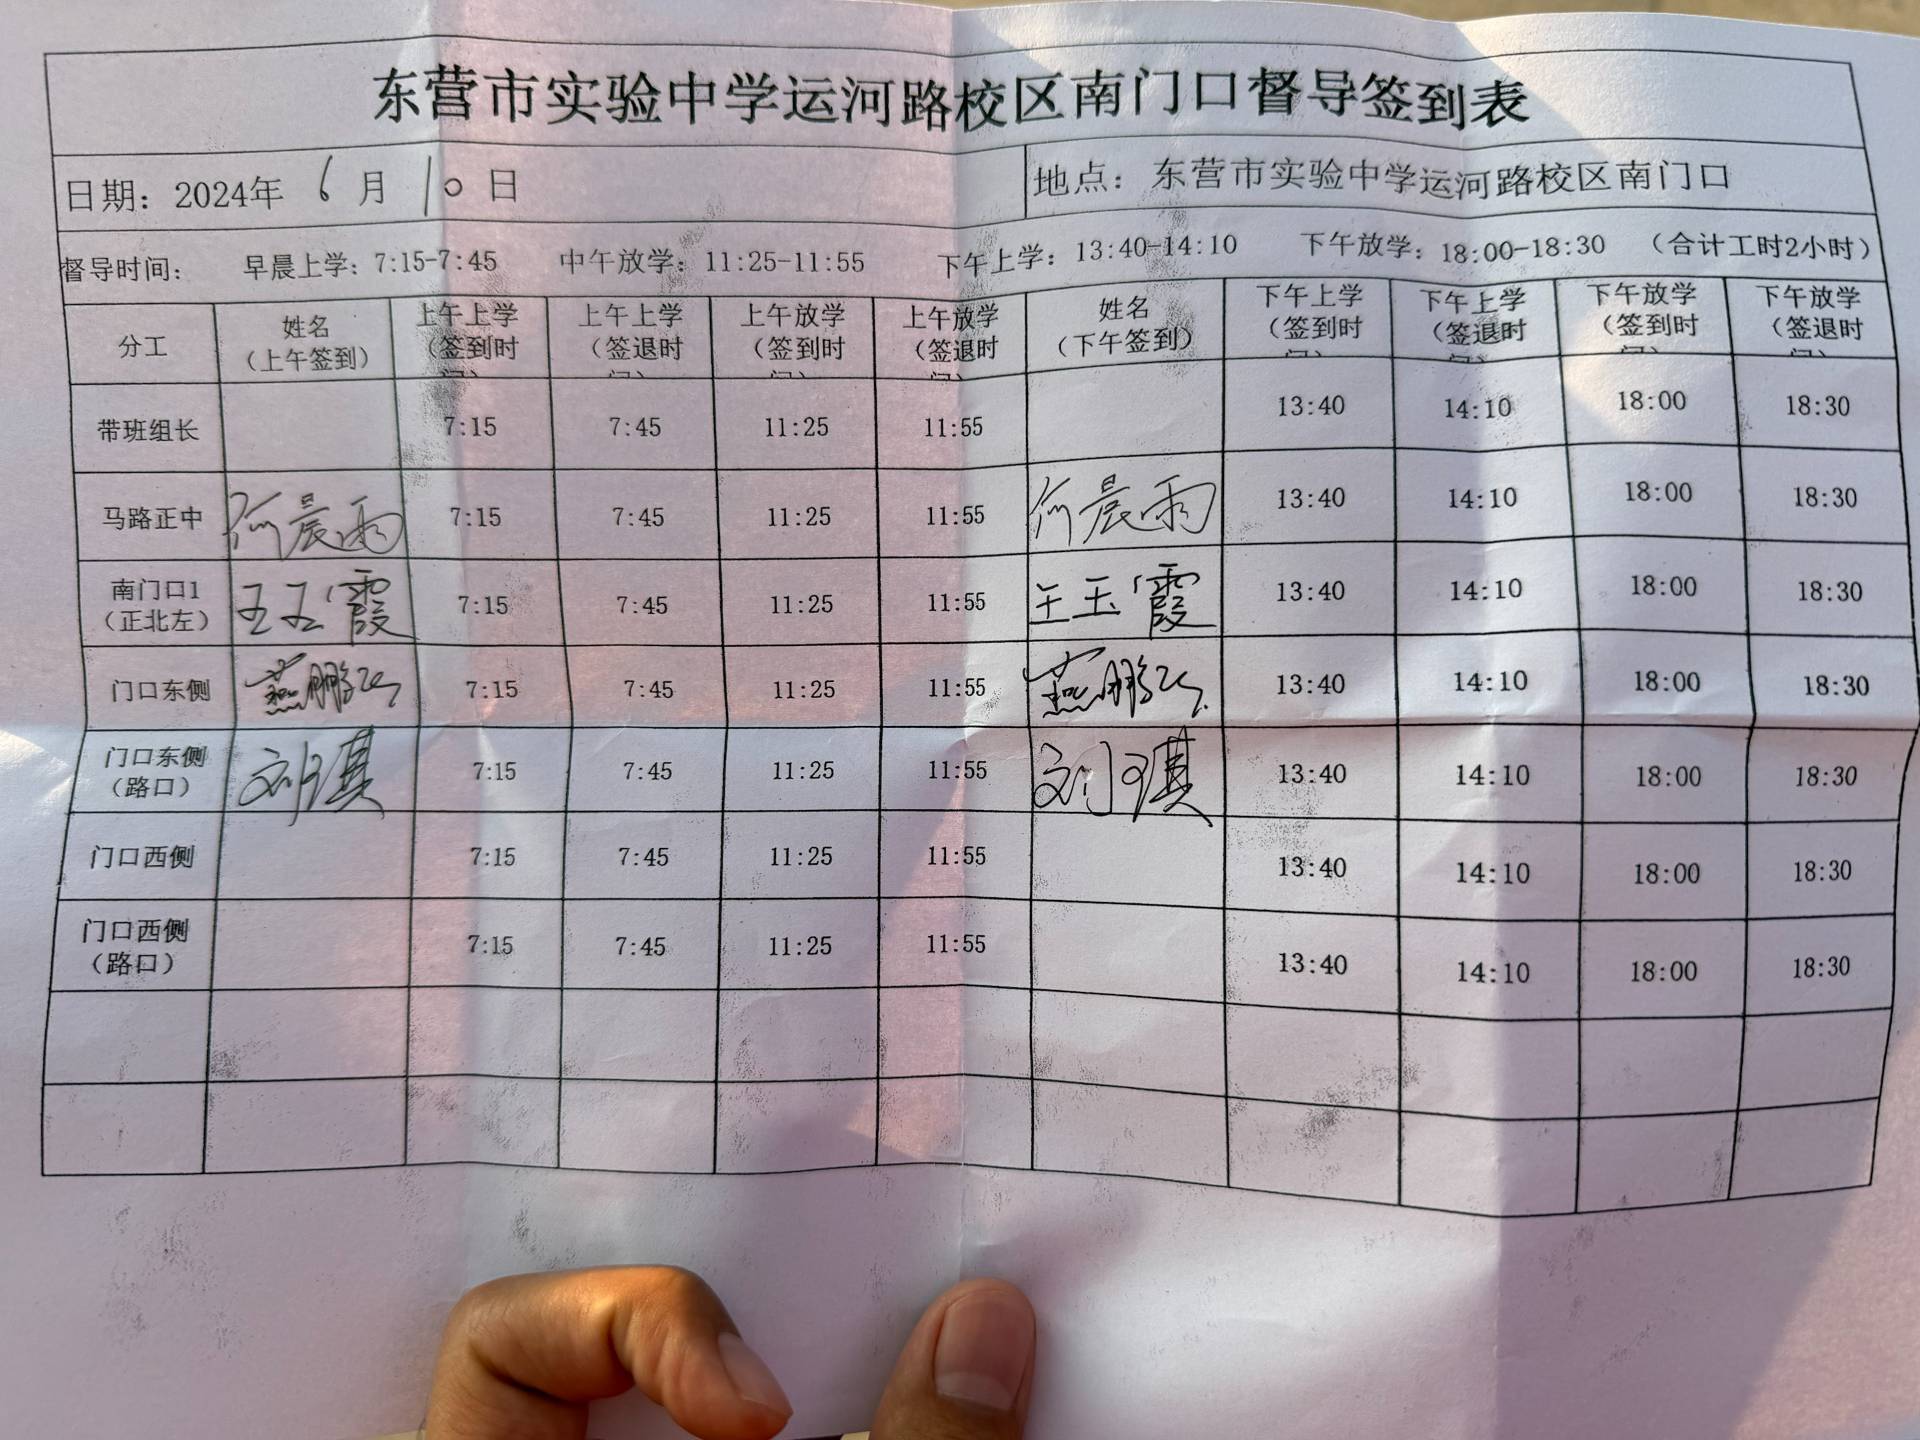 东营市实验中学运河路校区南门口督导签到表
日期：2024年 6 月 10 日 地点：东营市实验中学运河路校区南门口
督导时间： 早晨上学：7:15-7:45 中午放学：11:25-11:55 下午上学：13:40-14:10 下午放学：18:00-18:30 （合计工时2小时）
分工 姓名（上午签到） 上午上学（签到时间） 上午上学（签退时间） 上午放学（签到时间） 上午放学（签退时间） 姓名（下午签到） 下午上学（签到时间） 下午上学（签退时间） 下午放学（签到时间） 下午放学（签退时间）
带班组长 7:15 7:45 11:25 11:55 13:40 14:10 18:00 18:30
马路正中 何晨雨 7:15 7:45 11:25 11:55 何晨雨 13:40 14:10 18:00 18:30
南门口1（正北左） 王玉霞 7:15 7:45 11:25 11:55 王玉霞 13:40 14:10 18:00 18:30
门口东侧 燕鹏 7:15 7:45 11:25 11:55 燕鹏 13:40 14:10 18:00 18:30
门口东侧（路口） 刘琪 7:15 7:45 11:25 11:55 刘琪 13:40 14:10 18:00 18:30
门口西侧 7:15 7:45 11:25 11:55 13:40 14:10 18:00 18:30
门口西侧（路口） 7:15 7:45 11:25 11:55 13:40 14:10 18:00 18:30